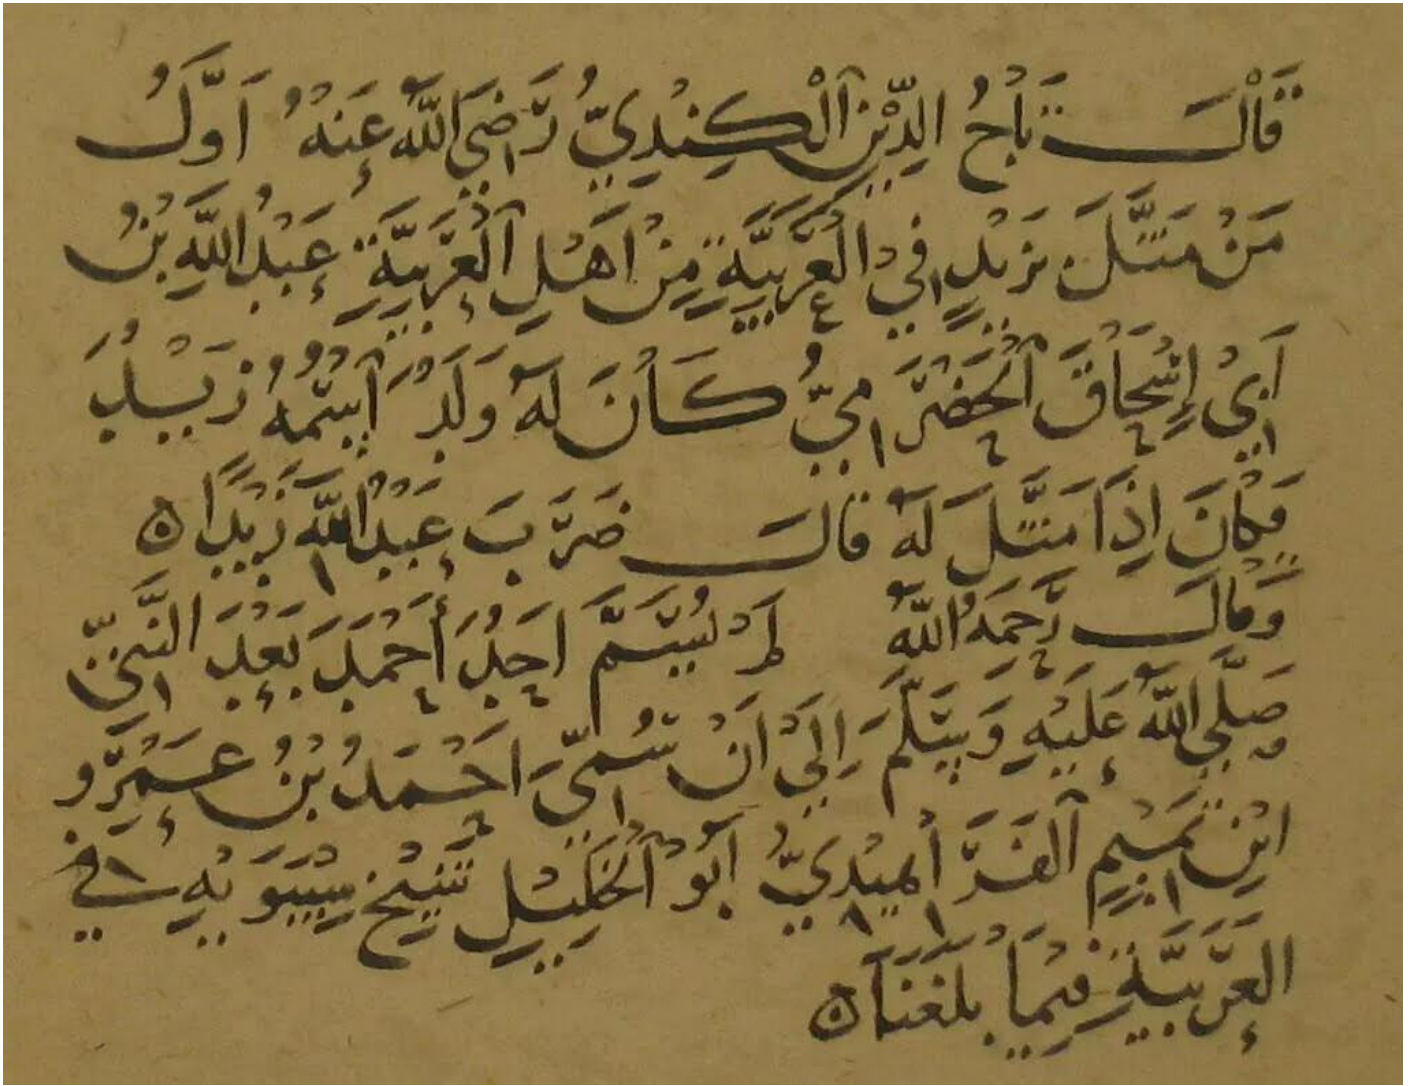 قَالَ تَاجُ الدِّيْنِ الْكِنْدِيُّ رَضِيَ اللّٰهُ عَنْهُ اَوَّلُ
مَنْ مَثَّلَ بِزَيْدٍ فِيْ الْعَرَبِيَّةِ مِنْ اَهْلِ الْعَرَبِيَّةِ عَبْدُ اللّٰهِ بْنُ
اَبِيْ إِسْحَاقَ الْحَضْرَمِيُّ كَانَ لَهُ وَلَدٌ اسْمُهُ زَيْدٌ
فَكَانَ اِذَا مَثَّلَ لَهُ قَالَ ضَرَبَ عَبْدُ اللّٰهِ زَيْدًا ه
وَقَالَ رَحِمَهُ اللّٰهُ لَمْ يُسَمَّ اَحَدٌ أَحْمَدَ بَعْدَ النَّبِيِّ
صَلَّى اللّٰهُ عَلَيْهِ وَسَلَّمَ اِلَى اَنْ سُمِّيَ اَحْمَدُ بْنُ عَمْرِو
ابْنِ تَمِيْمٍ الْفَرَاهِيْدِيُّ اَبُوْ الْخَلِيْلِ شَيْخِ سِيْبَوَيْهِ فِي
الْعَرَبِيَّةِ فِيْمَا بَلَغَنَا ه